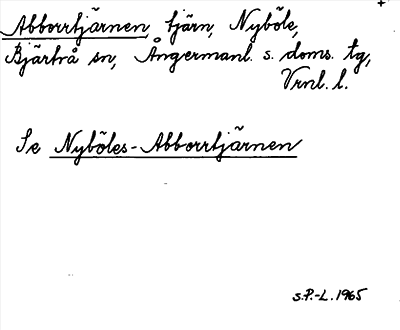 +
Abborrtjärnen, tjärn, Nyböle,
Bjärtrå sn, Ångermanl. s. doms. tg,
Vrnl. l.
Se Nyböles-Abborrtjärnen
s.P.-L. 1965